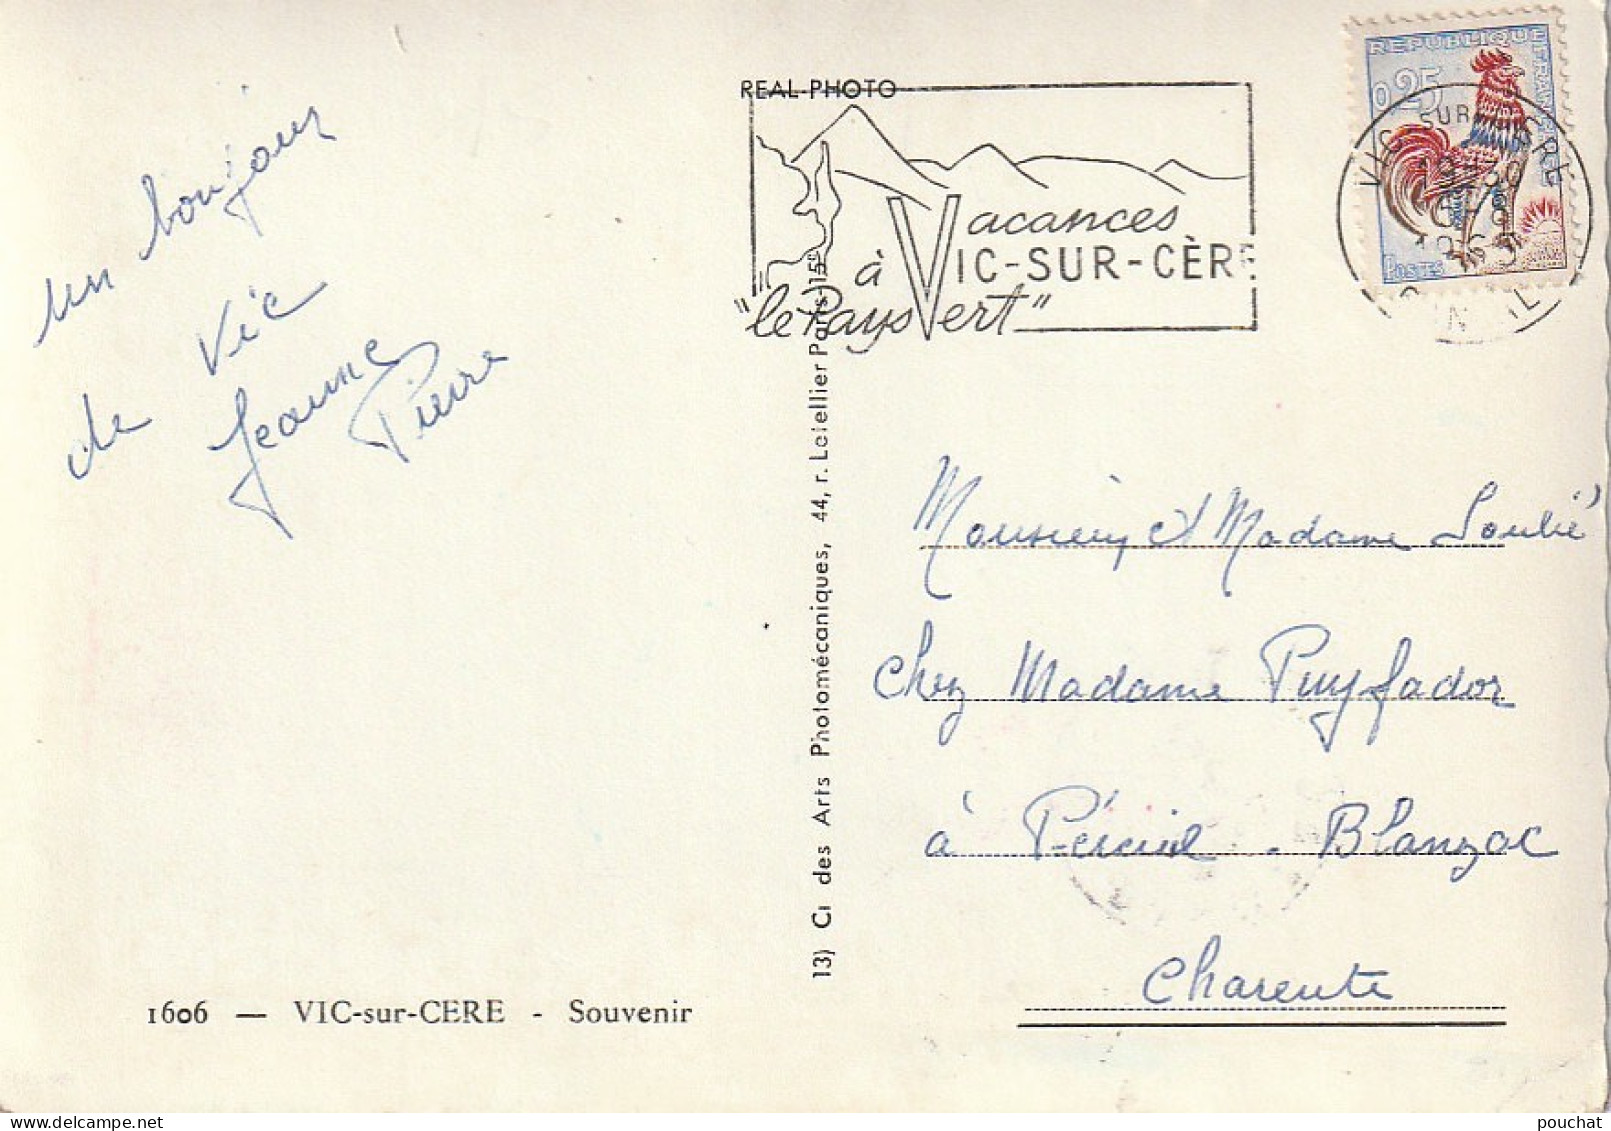 un bonjour
de Vic
Jeanne
Pierre
1606 — VIC-sur-CERE - Souvenir
REAL-PHOTO
Vacances
à VIC-SUR-CÈRE
"le Pays Vert"
13) Ci des Arts Photomécaniques, 44, r. Letellier Paris-15e
REPUBLIQUE FRANÇAISE
0,25
POSTES
VIC SUR CERE
Monsieur et Madame Soulié
chez Madame Puyfador
à Péreuil - Blanzac
Charente
pouchat